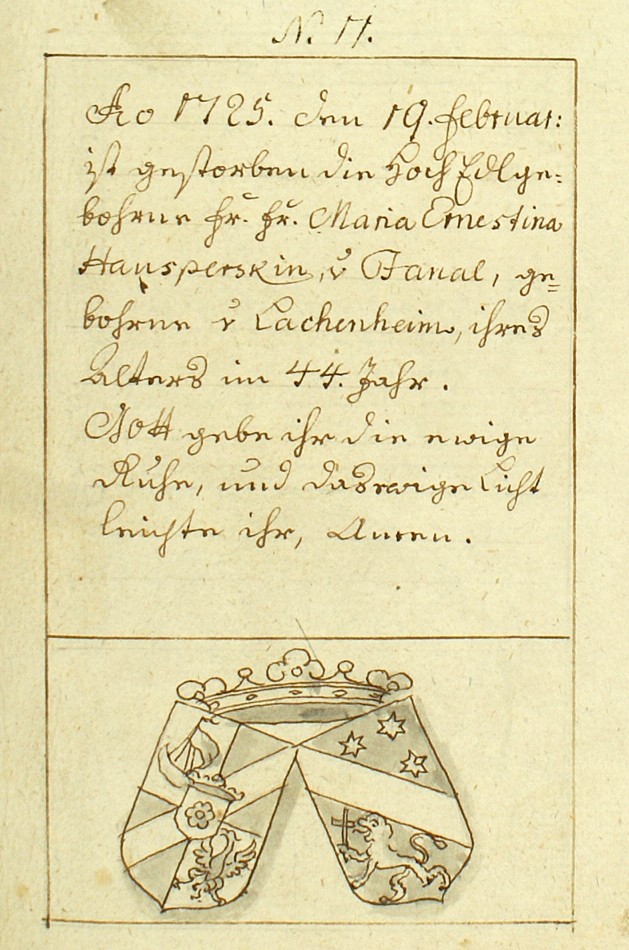 N. 17.
Ao 1725. den 19. februar:
ist gestorben die Hoch Edlge=
bohrne Fr. Fr. Maria Ernestina
Hausperskin, v Fanal, ge=
bohrne v Lachenheim, ihres
Alters im 44. Jahr.
Gott gebe ihr die ewige
Ruhe, und das ewige Licht
leichte ihr, Amen.